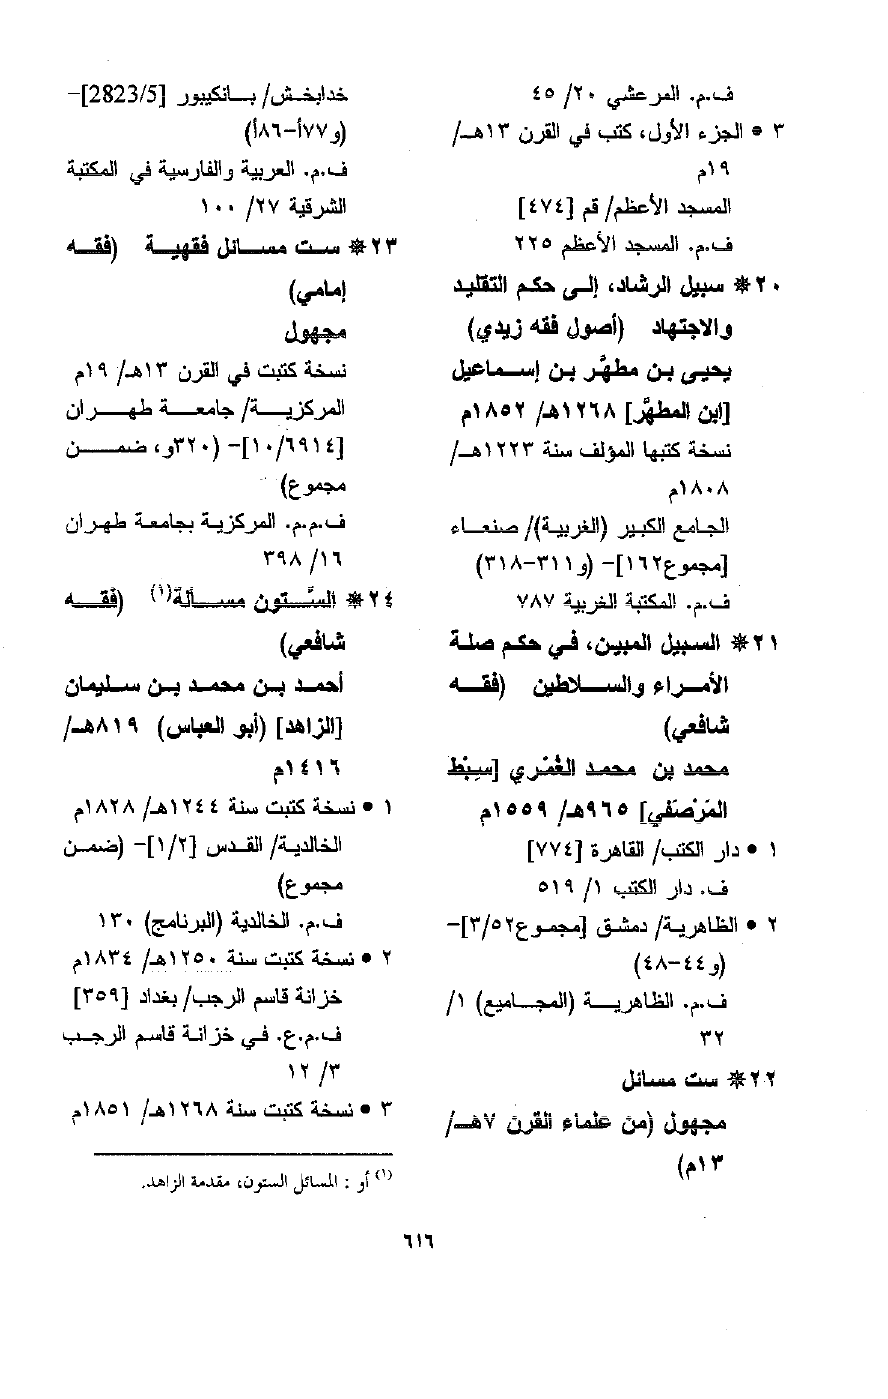 ف.م. المرعشي ٢٠/ ٤٥
٣ • الجزء الأول، كتب في القرن ١٣هـ/
١٩م
المسجد الأعظم/ قم [٤٧٤]
ف.م. المسجد الأعظم ٢٢٥
٢٠ * سبيل الرشاد، إلى حكم التقليد
والاجتهاد (أصول فقه زيدي)
يحيى بن مطهَّر بن إسماعيل
[ابن المطهَّر] ١٢٦٨هـ/ ١٨٥٢م
نسخة كتبها المؤلف سنة ١٢٢٣هـ/
١٨٠٨م
الجامع الكبير (الغربية)/ صنعاء
[مجموع١٦٢]- (و٣١١-٣١٨)
ف.م. المكتبة الغربية ٧٨٧
٢١ * السبيل المبين، في حكم صلة
الأمراء والسلاطين (فقه
شافعي)
محمد بن محمد الغُمْري [سِبْط
المَرْصَفي] ٩٦٥هـ/ ١٥٥٩م
١ • دار الكتب/ القاهرة [٧٧٤]
ف. دار الكتب ١/ ٥١٩
٢ • الظاهرية/ دمشق [مجموع٣/٥٢]-
(و٤٤-٤٨)
ف.م. الظاهرية (المجاميع) ١/
٣٢
٢٢ * ست مسائل
مجهول (من علماء القرن ٧هـ/
١٣م)
خدابخش/ بانكيبور [2823/5]-
(و٧٧أ-٨٦أ)
ف.م. العربية والفارسية في المكتبة
الشرقية ٢٧/ ١٠٠
٢٣ * ست مسائل فقهية (فقه
إمامي)
مجهول
نسخة كتبت في القرن ١٣هـ/ ١٩م
المركزية/ جامعة طهران
[١٠/٦٩١٤]- (٣٢٠و، ضمن
مجموع)
ف.م.م. المركزية بجامعة طهران
١٦/ ٣٩٨
٢٤ * السِّتون مسألة(١) (فقه
شافعي)
أحمد بن محمد بن سليمان
[الزاهد] (أبو العباس) ٨١٩هـ/
١٤١٦م
١ • نسخة كتبت سنة ١٢٤٤هـ/ ١٨٢٨م
الخالدية/ القدس [١/٢]- (ضمن
مجموع)
ف.م. الخالدية (البرنامج) ١٣٠
٢ • نسخة كتبت سنة ١٢٥٠هـ/ ١٨٣٤م
خزانة قاسم الرجب/ بغداد [٣٥٩]
ف.م.ع. في خزانة قاسم الرجب
٣/ ١٢
٣ • نسخة كتبت سنة ١٢٦٨هـ/ ١٨٥١م
(١) أو : المسائل الستون، مقدمة الزاهد.
٦١٦